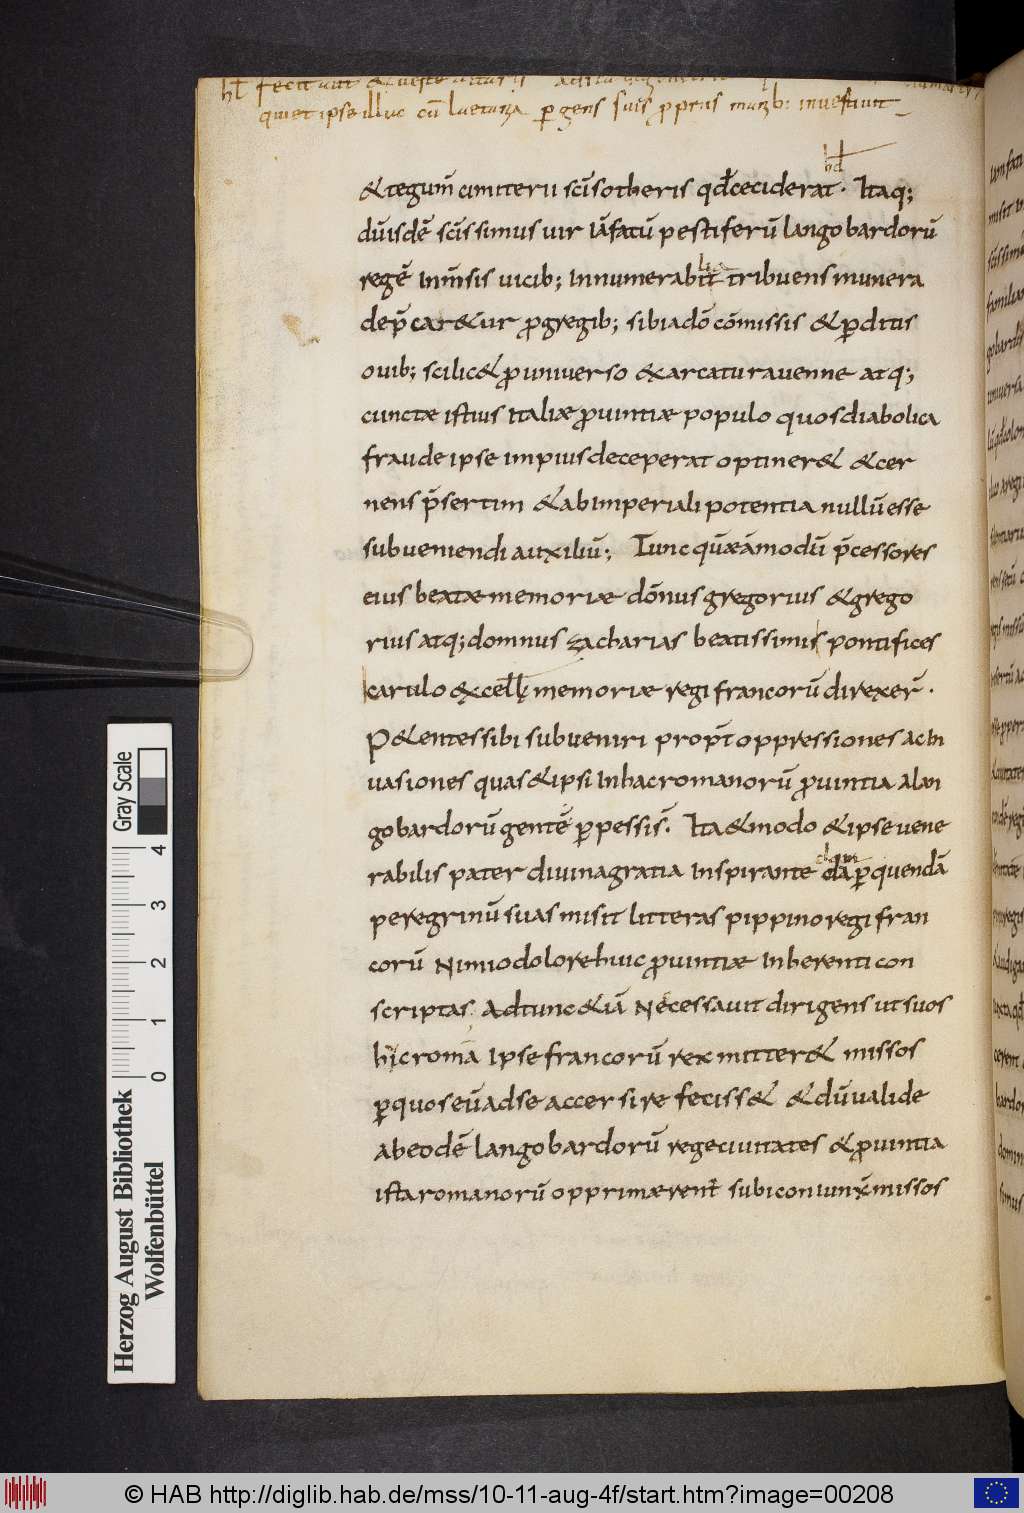 hd fecit
qui et ipse illuc cū laetania pergens suis propriis manib: investivit
hd
& tegum̄ cimiterii sc̄i sotheris qd̄ ceciderat. Itaq;
dū isdē sc̄issimus vir iā fatū pestiferū langobardorū
regē Inm̄sis vicib; Innumerabit tribuens munera
dep̄car&ur pro gregib; sibi a dō cōmissis & perditis
ovib; scilic& pro universo exarcatu ravenne atq;
cunctæ istius Italiæ provintiæ populo quos diabolica
fraude ipse impius deceperat optiner& & cer
nens p̄sertim & ab imperiali potentia nullū esse
subveniendi auxiliū; Tunc quæāmodū p̄cessores
eius beatæ memoriæ dōnus gregorius & grego
rius atq; domnus zacharias beatissimis pontifices
carulo excell memoriæ regi francorū direxer̄.
P&entes sibi subveniri propt̄ oppressiones ac In
vasiones quas & ipsi In hac romanorū provintia a lan
gobardorū gentē perpessis̄. Ita & modo & ipse vene
rabilis pater divina gratia Inspirante clā per quendā
peregrinū suas misit litteras pippino regi fran
corū Nimio dolore huic provintiæ Inherenti con
scriptas. Ad tunc & iā Necessavit dirigens ut suos
hic romā Ipse francorū rex mitter& missos
per quos eū ad se accersire feciss& & dū valide
ab eodē langobardorū rege civitates & provintia
ista romanorū opprimærent̄ subi coniunx̄ missos
Gray Scale
4
3
2
1
0
Herzog August Bibliothek
Wolfenbüttel
© HAB http://diglib.hab.de/mss/10-11-aug-4f/start.htm?image=00208